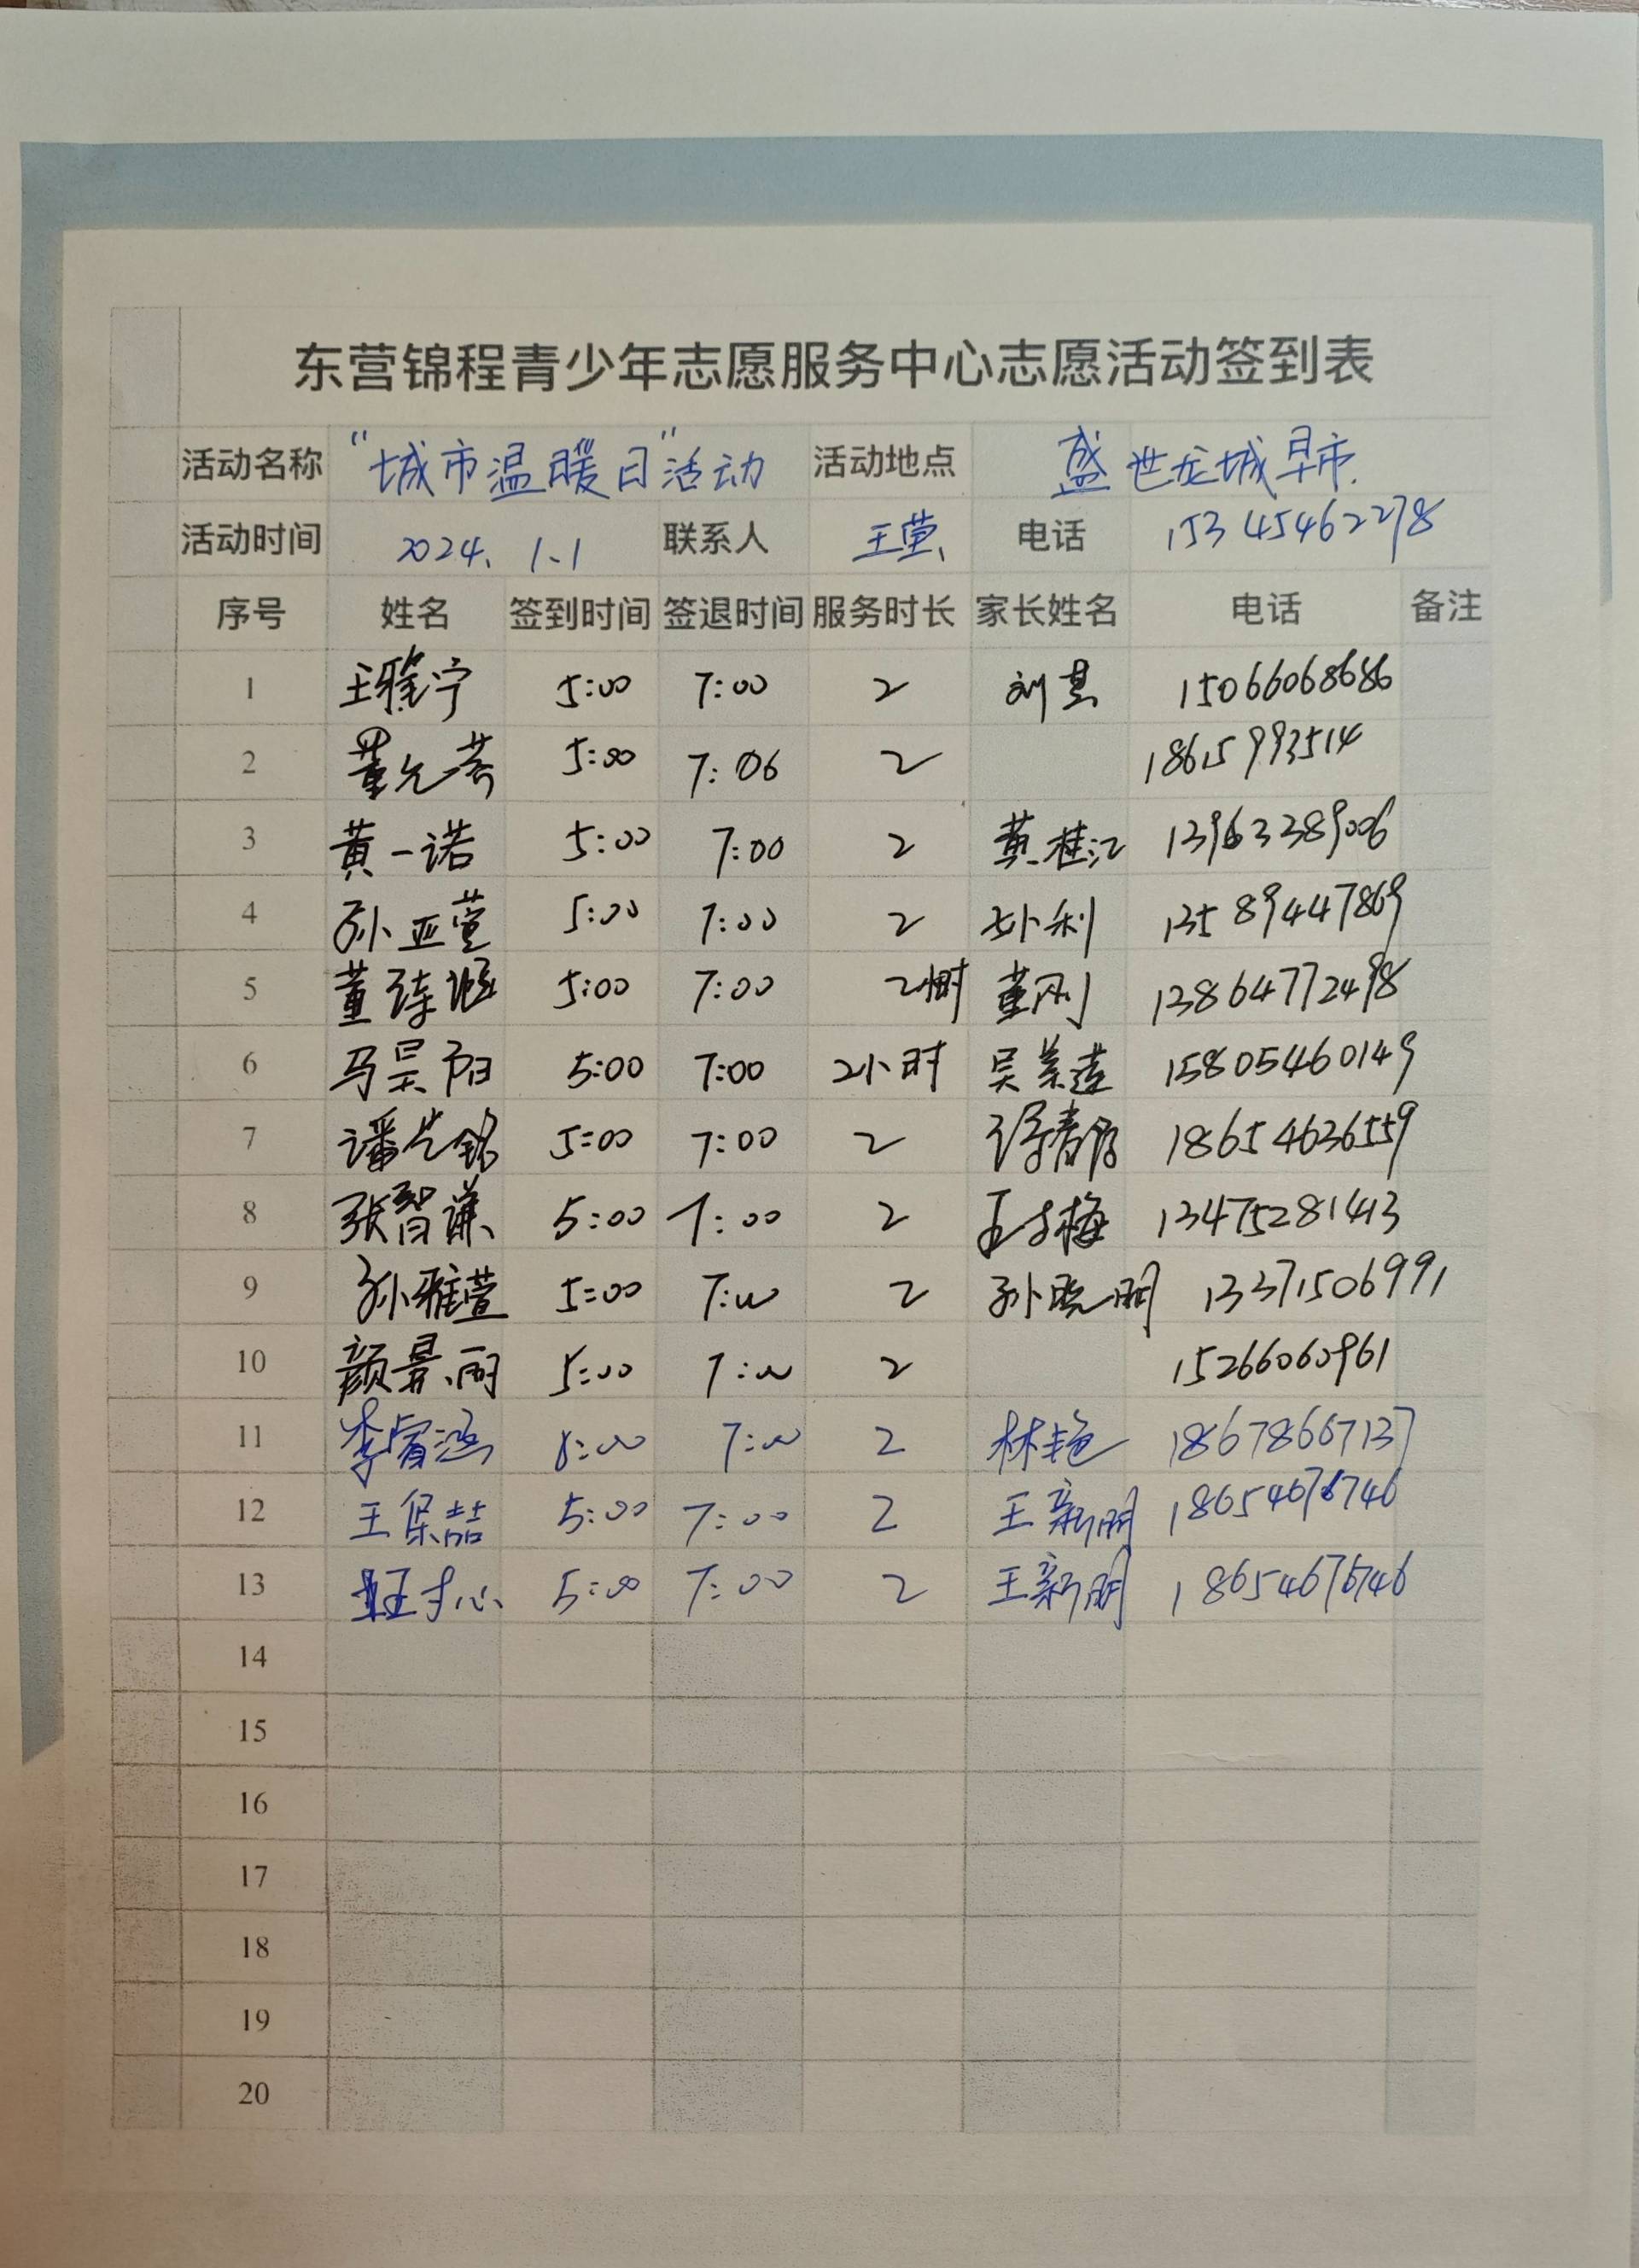 东营锦程青少年志愿服务中心志愿活动签到表
活动名称 “城市温暖日”活动 活动地点 盛世龙城早市.
活动时间 2024. 1.1 联系人 王莹 电话 15345462278
序号 姓名 签到时间 签退时间 服务时长 家长姓名 电话 备注
1 王雅宁 5:00 7:00 2 刘 15066068686
2 董允 5:00 7:06 2 18615993514
3 黄一诺 5:00 7:00 2 黄桂江 13963389006
4 孙亚萱 5:00 7:00 2 孙利 13589447869
5 董 5:00 7:00 2小时 董刚 13864772498
6 马昊阳 5:00 7:00 2小时 吴美莲 15805460149
7 潘 铭 5:00 7:00 2 18654636559
8 张智谦 5:00 7:00 2 梅 13475281413
9 孙雅萱 5:00 7:00 2 孙晓明 13371506991
10 颜景雨 5:00 7:00 2 15266060961
11 李睿涵 7:00 2 林艳 18678667137
12 王保喆 5:00 7:00 2 王新明 18654676746
13 心 5:00 7:00 2 王新明 18654676746
14
15
16
17
18
19
20